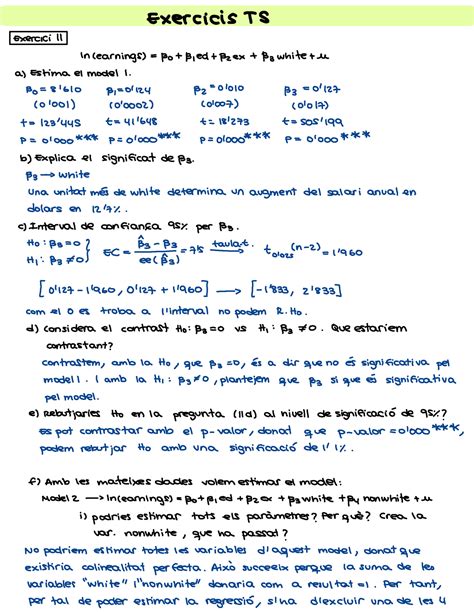 Exercicis TS
Exercici 11
ln(earnings) = β0 + β1ed + β2ex + β3 white + u
a) Estima el model 1.
β0 = 8'610 β1 = 0'124 β2 = 0'010 β3 = 0'127
(0'001) (0'0002) (0'007) (0'017)
t = 123'445 t = 41'648 t = 18'273 t = 505'199
P = 0'000*** P = 0'000*** P = 0'000*** P = 0'000***
b) Explica el significat de β3.
β3 → white
Una unitat més de white determina un augment del salari anual en
dolars en 12'7%.
c) Interval de confiança 95% per β3.
H0: β3 = 0 } EC = β̂3 - β3 / ee(β̂3) = 7'5 taula t. t0'025 (n-2) = 1'960
H1: β3 ≠ 0
[0'127 - 1'960, 0'127 + 1'960] → [-1'833, 2'833]
com el 0 es troba a l'interval no podem R.H0.
d) Considera el contrast H0: β3 = 0 vs H1: β3 ≠ 0. Que estariem
contrastant?
contrastem, amb la H0, que β3 = 0, és a dir que no és significativa pel
model 1. I amb la H1: β3 ≠ 0, plantejem que β3 si que és significativa
pel model.
e) Rebutjaries H0 en la pregunta (11d) al nivell de significació de 95%?
Es pot contrastar amb el p-valor, donat que p-valor = 0'000***,
podem rebutjar H0 amb una significació de l'1%.
f) Amb les mateixes dades volem estimar el model:
Model 2 → ln(earnings) = β0 + β1ed + β2ex + β3white + β4 nonwhite + u
i) podries estimar tots els paràmetres? Per què? Crea la
var. nonwhite, que ha passat?
No podriem estimar totes les variables d'aquest model, donat que
existiria colinealitat perfecta. Això succeeix perque la suma de les
variables "white" i "nonwhite" donaria com a resultat = 1. Per tant,
per tal de poder estimar la regressió, s'ha d'excluir una de les 4